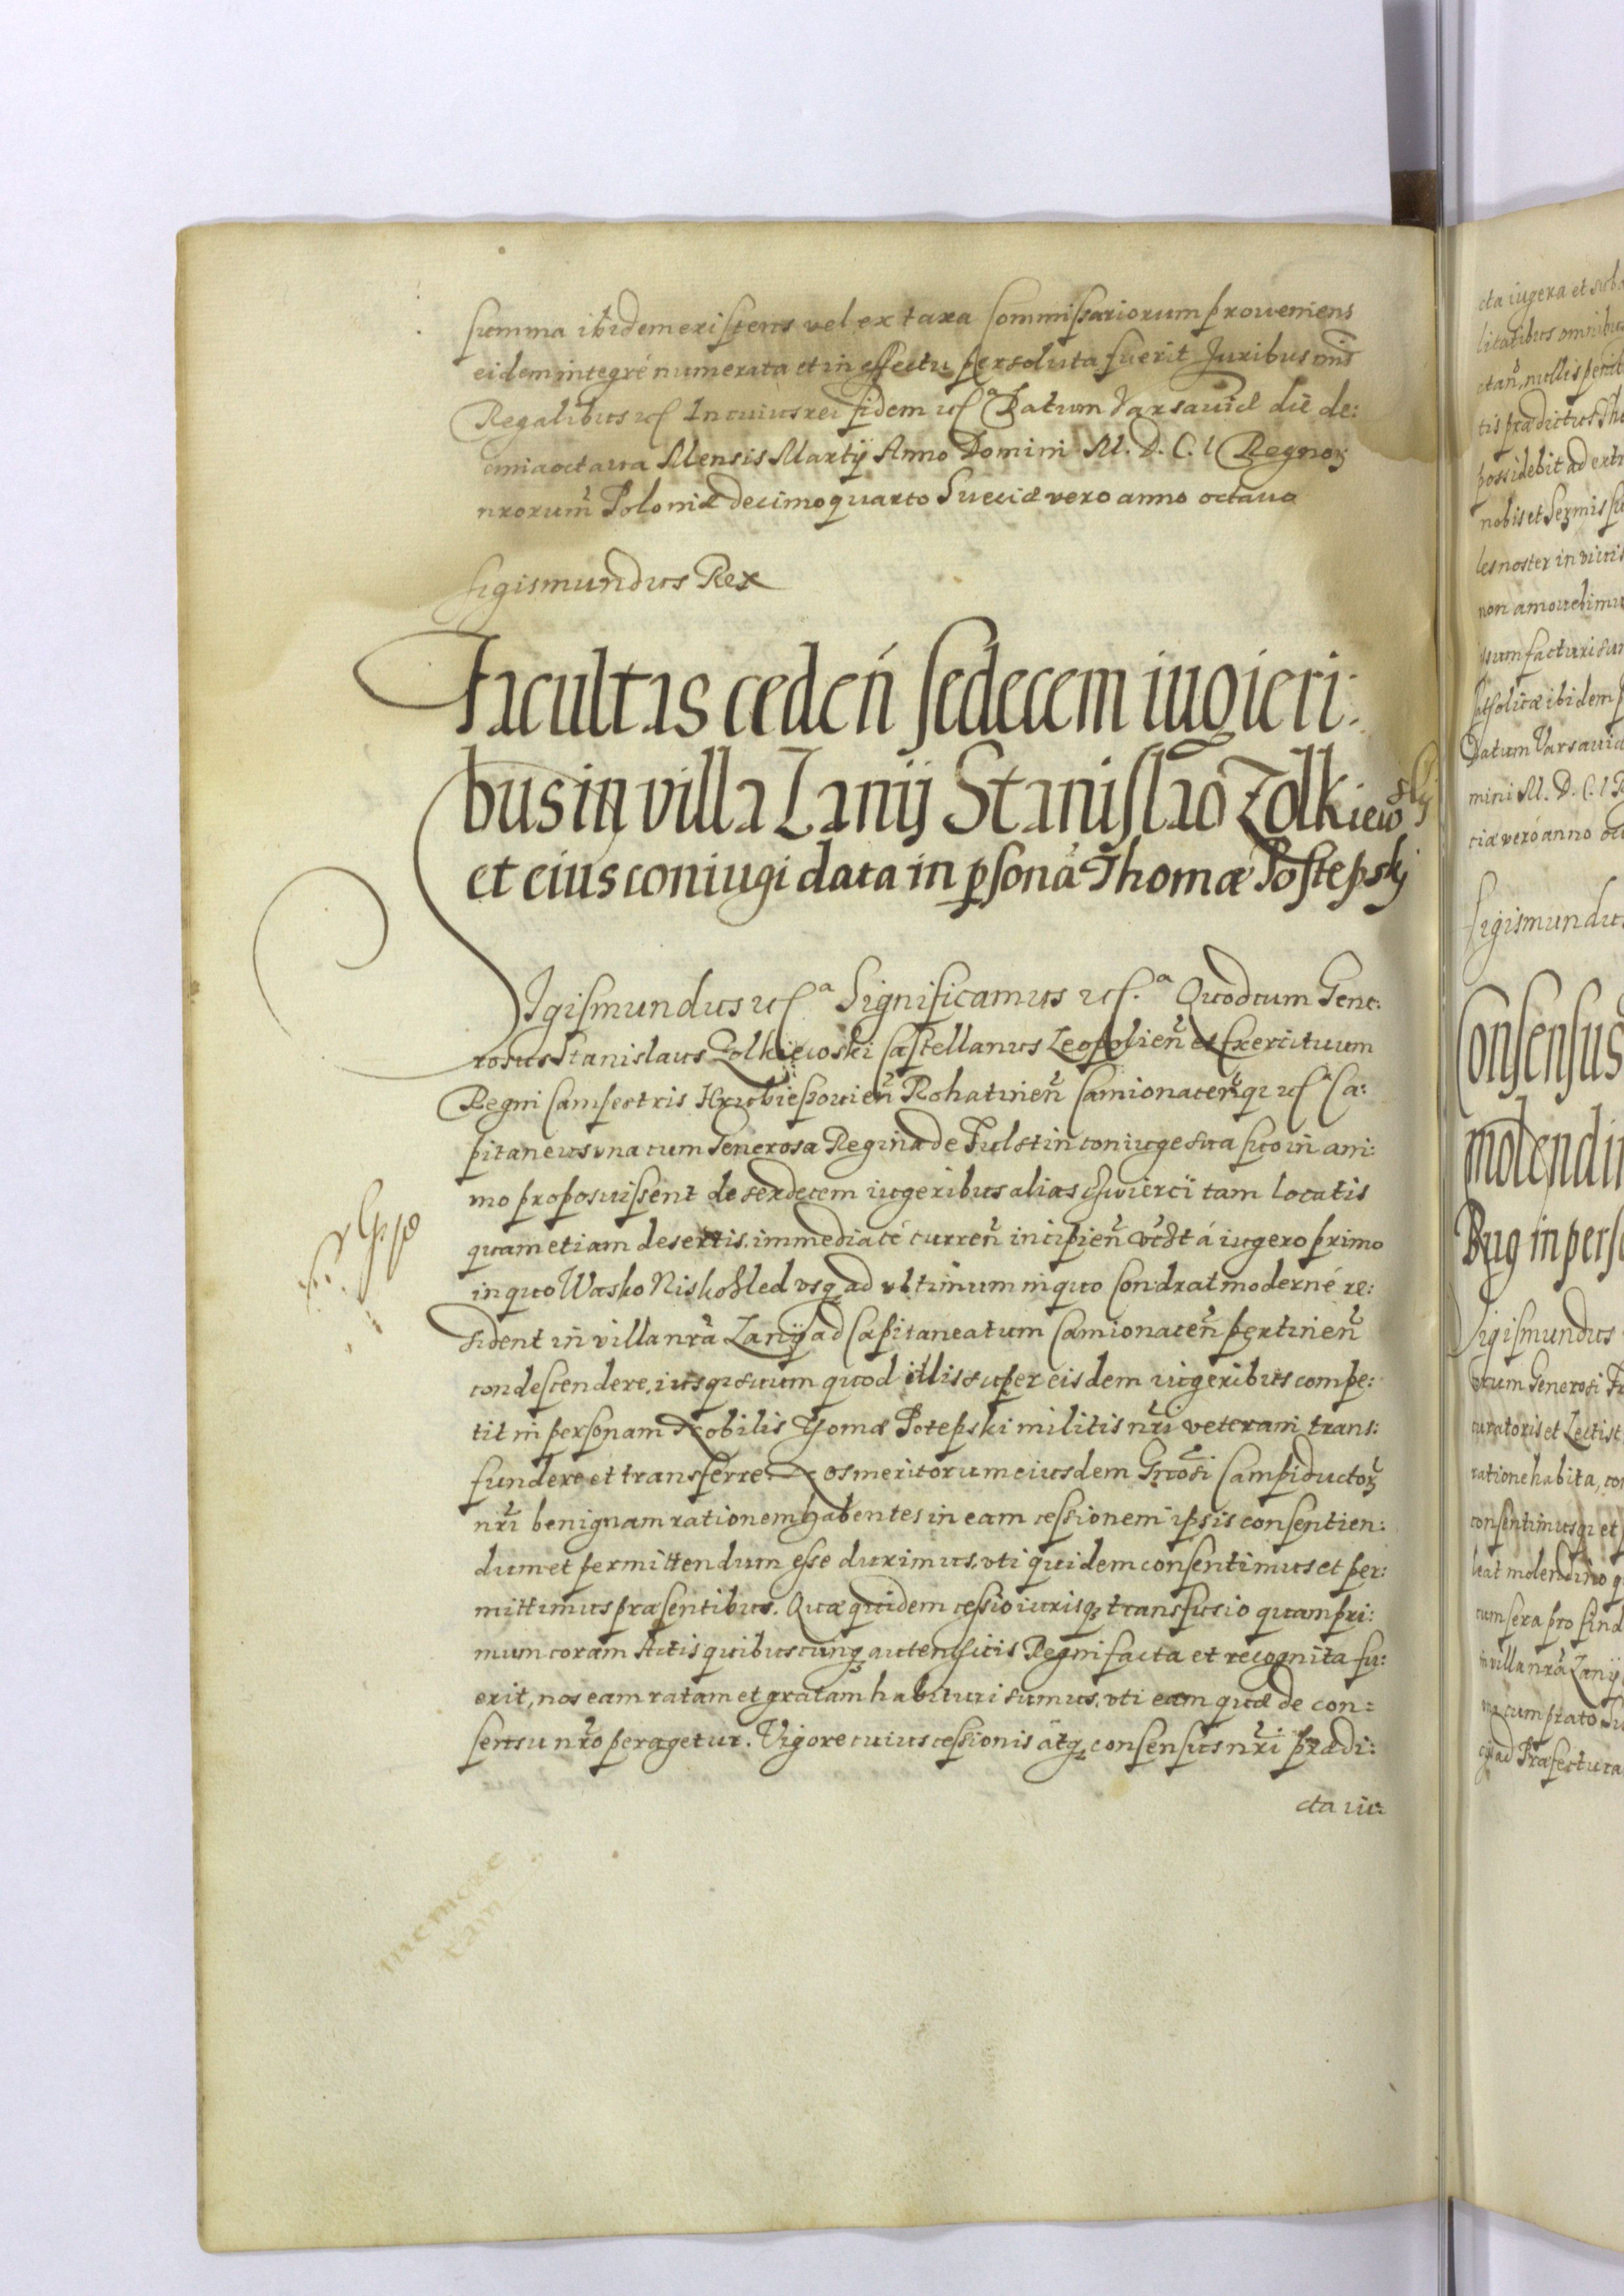 summa ibidem existens vel ex taxa Commissariorum proveniens
eidem integré numerata et in effectu persoluta fuerit Juribus nris̃
Regalibus etcª In cuius rei fidem etcª Datum Varsaviæ die de:
cima octava Mensis Martij Anno Domini M. D. C. I Regnoꝝ
nrorum̃ Poloniæ decimo quarto Sueciæ vero anno octavo
Sigismundus Rex
Facultas ceden̄ sedecem iugieri:
bus in villa Zanij Stanislao Zolkiewskij
et eius coniugi data in ꝑsonã Thomæ Postepskj
Sigismundus etcª Significamus etc.ª Quod cum Gene:
rosus Stanislaus Zolkiewski Castellanus Leopolien̄ et Exercituum
Regni Campestris Hrubiessovien̄ Rohatinen̄ Camionacen̄ qꝫ etcª Ca:
pitaneus una cum Generosa Regina de Fulstin coniuge sua suo in ani:
mo proposuissent de sexdecem iugeribus alias cwierci tam locatis
quam etiam desertis, immediaté curren̄ incipien̄ vcdt á iugero primo
in quo Wasko Niskohled usqꝫ ad ultimum in quo Condrat moderné re:
sident in villa nrã Zanij ad Capitaneatum Camionacen̄ pertinen̄
condescendere, iusqꝫ suum quod illis super eisdem iugeribus compe:
tit in personam Nobilis Thomæ Potepski militis nr̃i veterani trans:
fundere et transferre Nos meritorum eiusdem Gn̄osi Campiductoꝝ
nr̃i benignam rationem habentes in eam cessionem ipsis consentien:
dum et permittendum esse duximus, uti quidem consentimus et per:
mittimus præsentibus. Quæ quidem cessio iurisqꝫ transfusio quampri:
mum coram Actis quibuscunqꝫ autenticis Regni facta et recognita fu:
erit, nos eam ratam et gratam habituri sumus, uti eam quæ de con:
sensu nr̃o peragetur. Vigore cuius cessionis atqꝫ consensus nr̃i prædi:
cta iu:
cta iugera et
litatibus omnibus
nullis
tis prædictus
possidebit ad
nobis et
les noster in
non amovebimus
facturi
ibidem
Datum Varsaviæ
mini M. D. C. I
ciæ veró anno
Sigismundus
Consensus
molendi
Bug in
Sigismundus
Generosi
curatoris et
ratione habita,
consentimusqꝫ et
leat molendino
cum sera pro
in villa nrã Zanij
cum prato
ad Præfectura